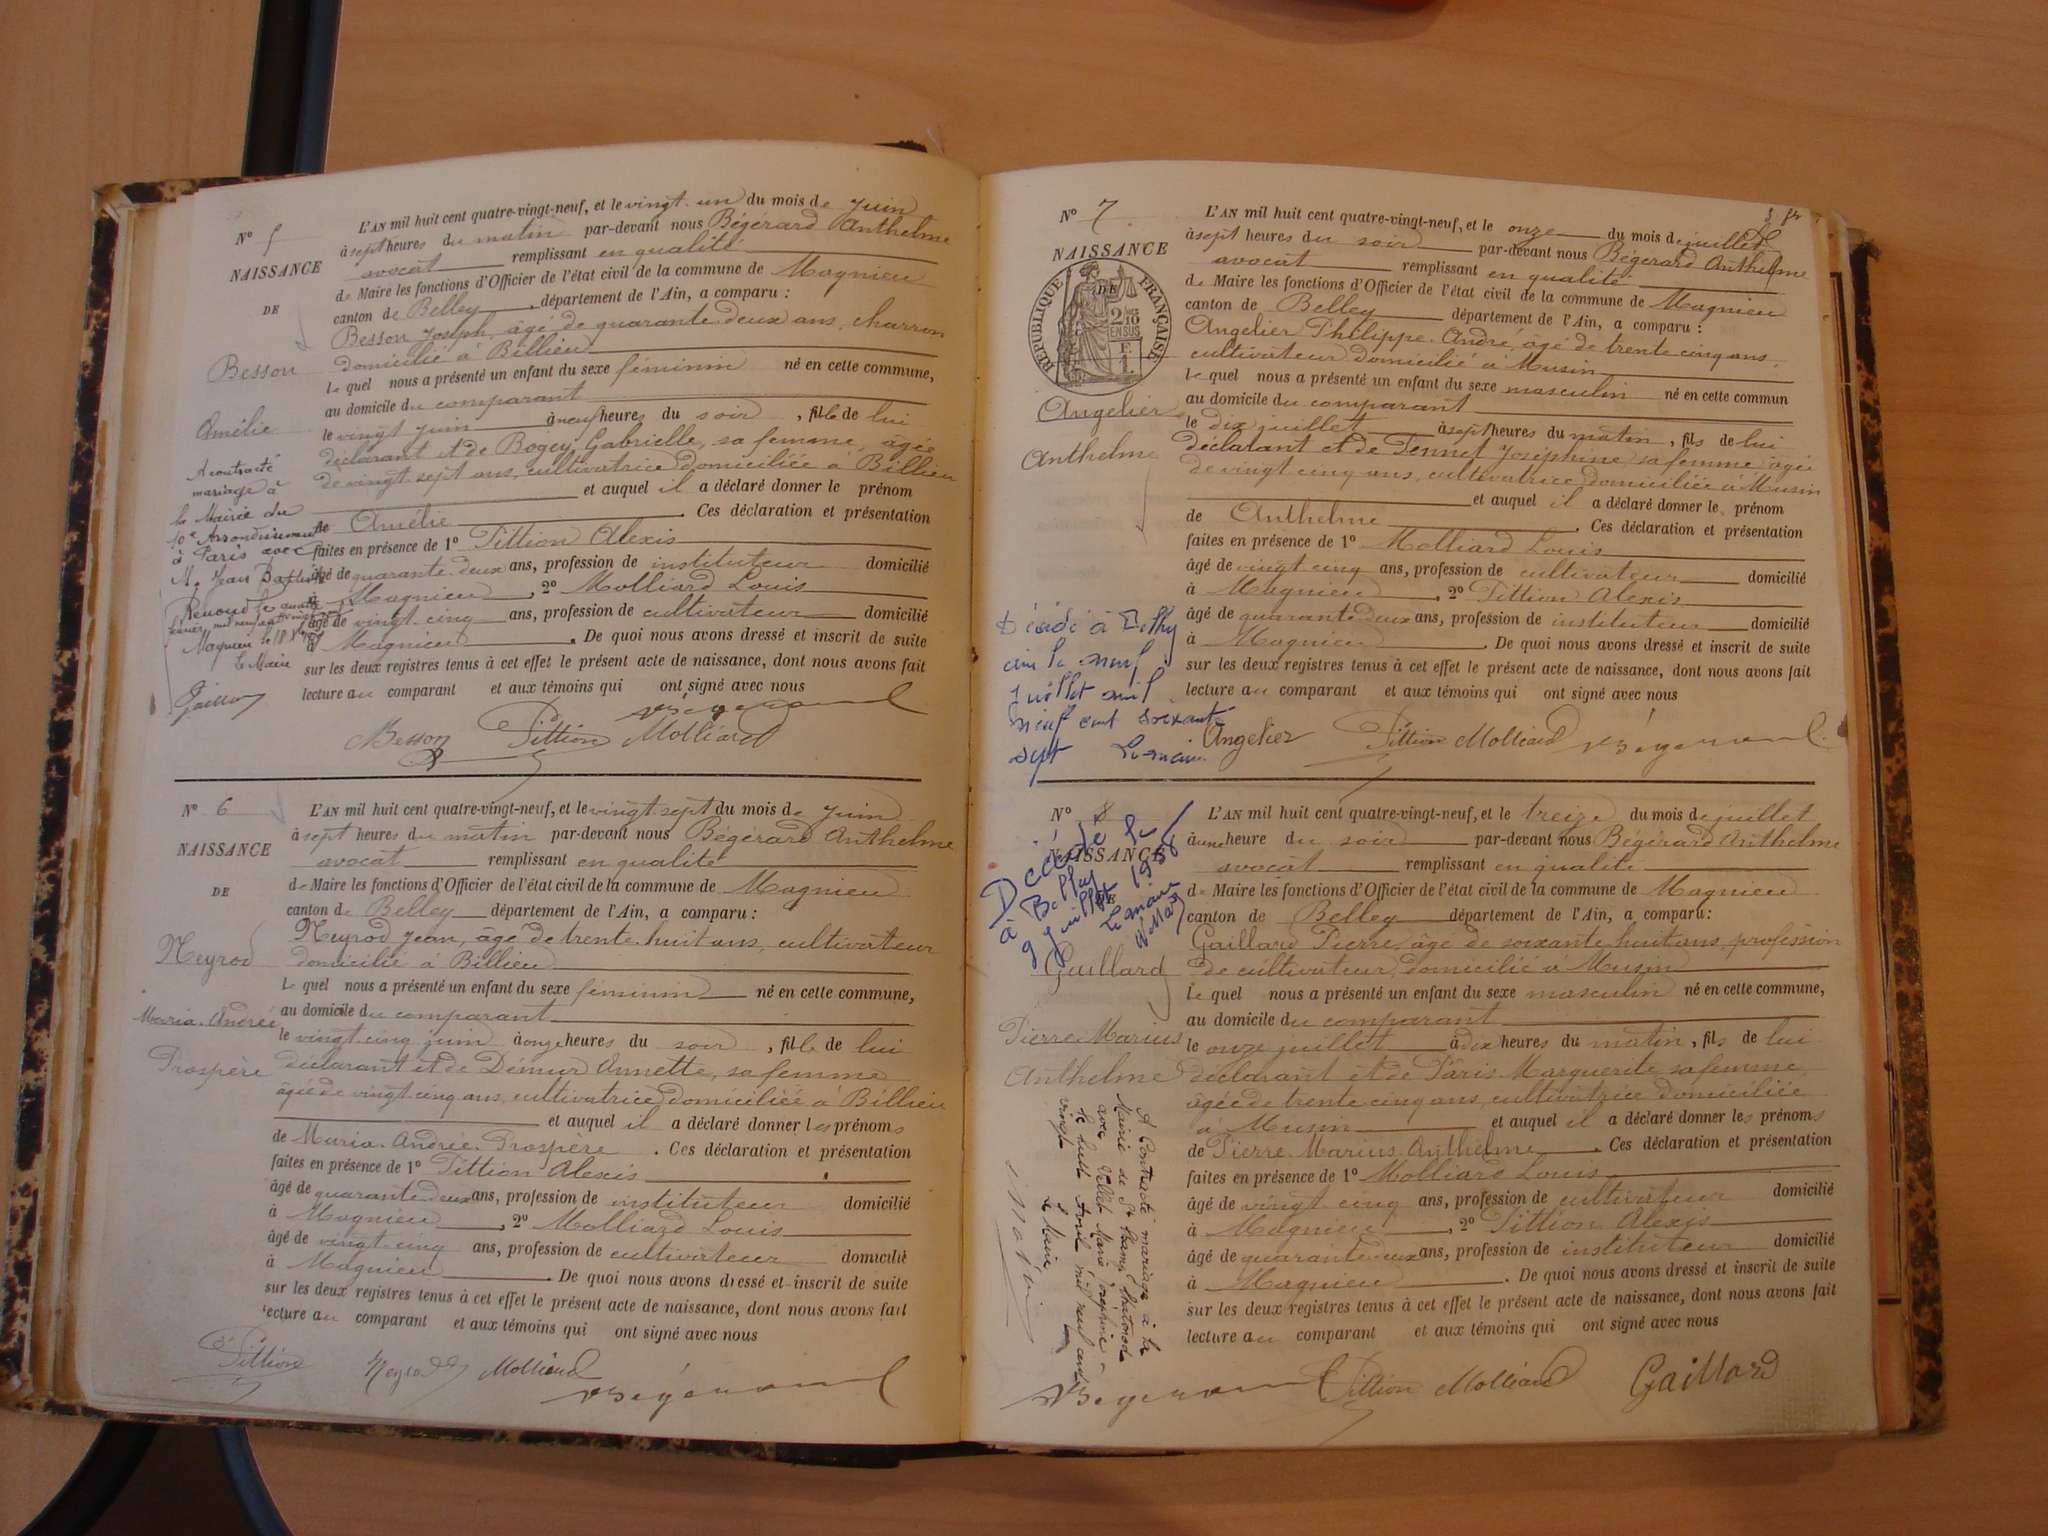 Nº 5
NAISSANCE
DE
Besson
Amélie
A contracté
mariage à
la Mairie du
10e Arrondissement
à Paris avec
M. Jean Baptiste
Renoud le quatre
Magnieu le 18
Le Maire
L'AN mil huit cent quatre-vingt-neuf, et le vingt un du mois de juin
à sept heures du matin par-devant nous Bégérard Anthelme
avocat remplissant en qualité
de Maire les fonctions d'Officier de l'état civil de la commune de Magnieu
canton de Belley, département de l'Ain, a comparu :
Besson Joseph, âgé de quarante deux ans, charron
domicilié à Billieu
Le quel nous a présenté un enfant du sexe féminin né en cette commune,
au domicile du comparant
le vingt juin à neuf heures du soir, fille de lui
déclarant et de Bogey Gabrielle, sa femme, âgée
de vingt sept ans, cultivatrice domiciliée à Billieu
et auquel il a déclaré donner le prénom
de Amélie. Ces déclaration et présentation
faites en présence de 1º Pittion Alexis
âgé de quarante deux ans, profession de instituteur domicilié
à Magnieu, 2º Molliard Louis
âgé de vingt cinq ans, profession de cultivateur domicilié
à Magnieu. De quoi nous avons dressé et inscrit de suite
sur les deux registres tenus à cet effet le présent acte de naissance, dont nous avons fait
lecture au comparant et aux témoins qui ont signé avec nous
Besson Pittion Molliard Bégérard
Nº 6
NAISSANCE
DE
Neyrod
Maria Andrée
Prospère
L'AN mil huit cent quatre-vingt-neuf, et le vingt sept du mois de juin
à sept heures du matin par-devant nous Bégérard Anthelme
avocat remplissant en qualité
de Maire les fonctions d'Officier de l'état civil de la commune de Magnieu
canton de Belley département de l'Ain, a comparu :
Neyrod Jean, âgé de trente huit ans, cultivateur
domicilié à Billieu
Le quel nous a présenté un enfant du sexe féminin né en cette commune,
au domicile du comparant
le vingt cinq juin à onze heures du soir, fille de lui
déclarant et de Démur Annette, sa femme
âgée de vingt cinq ans, cultivatrice domiciliée à Billieu
et auquel il a déclaré donner les prénoms
de Maria Andrée Prospère. Ces déclaration et présentation
faites en présence de 1º Pittion Alexis
âgé de quarante deux ans, profession de instituteur domicilié
à Magnieu, 2º Molliard Louis
âgé de vingt cinq ans, profession de cultivateur domicilié
à Magnieu. De quoi nous avons dressé et inscrit de suite
sur les deux registres tenus à cet effet le présent acte de naissance, dont nous avons fait
lecture au comparant et aux témoins qui ont signé avec nous
Pittion Neyrod Molliard Bégérard
Nº 7
NAISSANCE
DE
RÉPUBLIQUE FRANÇAISE
2/10 EN SUS
Angelier
Anthelme
Décédé à
le neuf
juillet mil
neuf cent soixante
sept Le maire
L'AN mil huit cent quatre-vingt-neuf, et le onze du mois de juillet
à sept heures du soir par-devant nous Bégérard Anthelme
avocat remplissant en qualité
de Maire les fonctions d'Officier de l'état civil de la commune de Magnieu
canton de Belley département de l'Ain, a comparu :
Angelier Philippe André, âgé de trente cinq ans,
cultivateur domicilié à Musin
Le quel nous a présenté un enfant du sexe masculin né en cette commun
au domicile du comparant
le dix juillet à sept heures du matin, fils de lui
déclarant et de Pennet Joséphine sa femme âgée
de vingt cinq ans, cultivatrice domiciliée à Musin
et auquel il a déclaré donner le prénom
de Anthelme. Ces déclaration et présentation
faites en présence de 1º Molliard Louis
âgé de vingt cinq ans, profession de cultivateur domicilié
à Magnieu, 2º Pittion Alexis
âgé de quarante deux ans, profession de instituteur domicilié
à Magnieu. De quoi nous avons dressé et inscrit de suite
sur les deux registres tenus à cet effet le présent acte de naissance, dont nous avons fait
lecture au comparant et aux témoins qui ont signé avec nous
Angelier Pittion Molliard Bégérard
Nº 8
NAISSANCE
DE
Décédé le
à Belley
9 juillet 1968
Le maire
Gaillard
Pierre Marius
Anthelme
A Contracté mariage à la
Mairie de St
avec Marie Joséphine
le huit Avril mil neuf cent
vingt
Le Maire
L'AN mil huit cent quatre-vingt-neuf, et le treize du mois de juillet
à une heure du soir par-devant nous Bégérard Anthelme
avocat remplissant en qualité
de Maire les fonctions d'Officier de l'état civil de la commune de Magnieu
canton de Belley département de l'Ain, a comparu:
Gaillard Pierre, âgé de soixante huit ans, profession
de cultivateur, domicilié à Musin
Le quel nous a présenté un enfant du sexe masculin né en cette commune,
au domicile du comparant
le onze juillet à dix heures du matin, fils de lui
déclarant et de Pâris Marguerite sa femme,
âgée de trente cinq ans, cultivatrice domiciliée
à Musin et auquel il a déclaré donner les prénoms
de Pierre Marius Anthelme. Ces déclaration et présentation
faites en présence de 1º Molliard Louis
âgé de vingt cinq ans, profession de cultivateur domicilié
à Magnieu, 2º Pittion Alexis
âgé de quarante deux ans, profession de instituteur domicilié
à Magnieu. De quoi nous avons dressé et inscrit de suite
sur les deux registres tenus à cet effet le présent acte de naissance, dont nous avons fait
lecture au comparant et aux témoins qui ont signé avec nous
Bégérard Pittion Molliard Gaillard